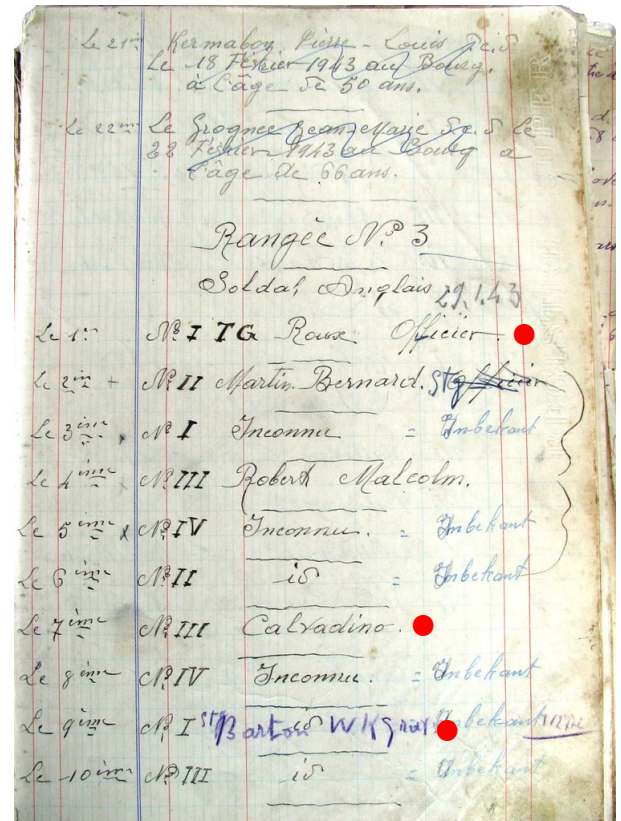 Le 21ème Kermabon Pierre - Louis d.c.d
Le 18 Février 1943 au Bourg.
à l'âge de 50 ans.
Le 22ème Le Grognec Jean Marie d.c.d le
22 Février 1943 au Bourg a
l'âge de 66 ans.
Rangée N° 3
Soldat Anglais 29.1.43
Le 1er N° I TG Roux Officier.
Le 2ème + N° II Martin Bernard. St Officier
Le 3ème x N° I Inconnu = Unbekant
Le 4ème x N° III Robert Malcolm.
Le 5ème x N° IV Inconnu. = Unbekant
Le 6ème N° II id = Unbekant
Le 7ème N° III Calvadino.
Le 8ème N° IV Inconnu. = Unbekant
Le 9ème N° I St Barton id W K Unbekant
Le 10ème N° III id = Unbekant